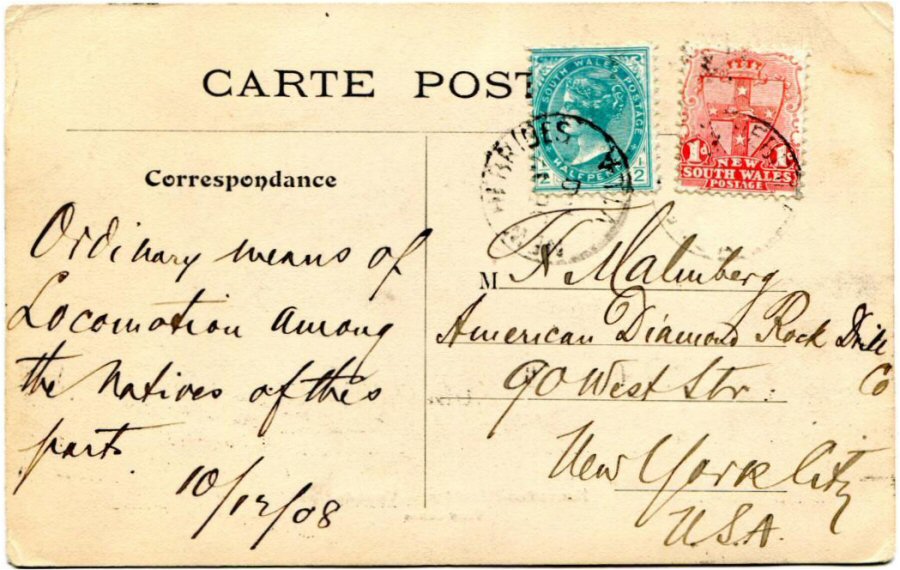 CARTE POST
SOUTH WALES POSTAGE
HALFPE
1/2
1d
NEW
SOUTH WALES
POSTAGE
BRIDES
VILA
Correspondance
Ordinary means of
Locomotion among
the Natives of this
part
10/12/08
M F Malmberg
American Diamond Rock Drill
Co
90 West Str.
New York City
U.S.A.